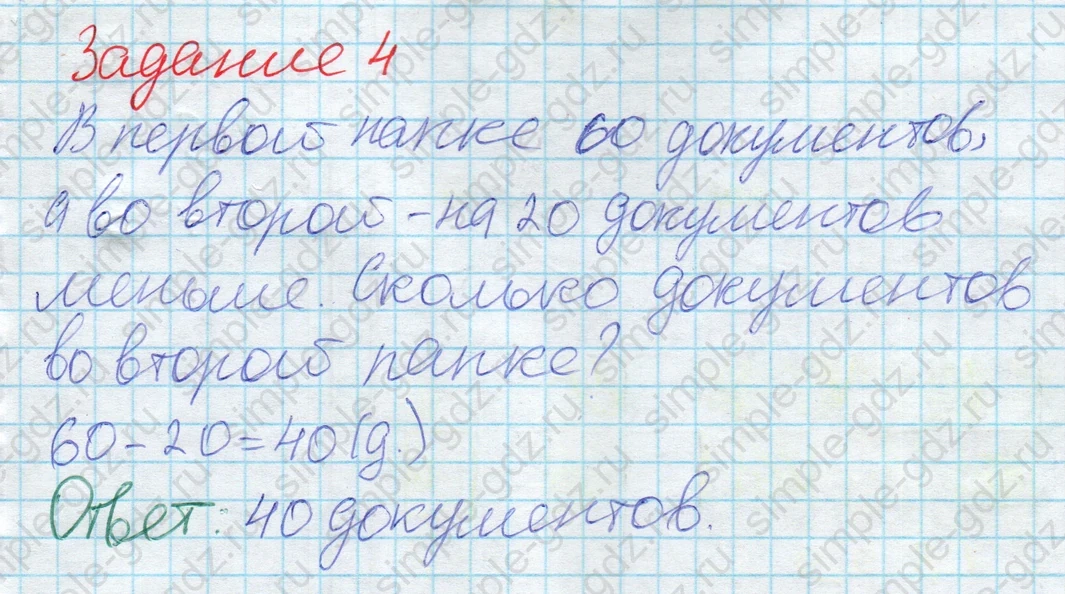 Задание 4
В первой папке 60 документов,
а во второй - на 20 документов
меньше. Сколько документов
во второй папке?
60 - 20 = 40 (д.)
Ответ: 40 документов.
simple-gdz.ru